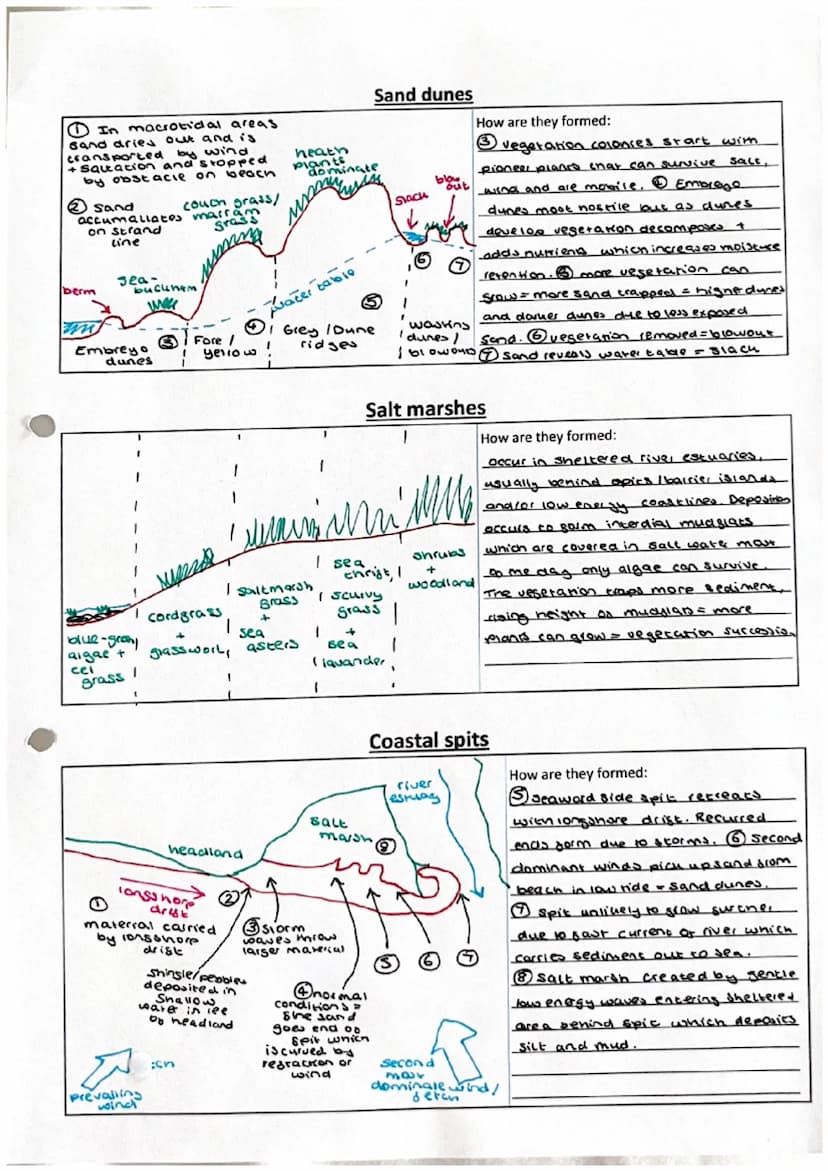 Sand dunes
① In macrotidal areas
sand dries out and is
transported by wind
+ saltation and stopped
by obstacle on beach
② Sand
accumallates
on strand
line
berm
sea-
couch grass/
marram
grass
heath
plants
dominate
slack
blow
out
water table
③
④
⑤
⑥
⑦
Embreyo
dunes
Fore/
yellow
Grey/Dune
ridges
wasting
dunes/
blowouts
How are they formed:
③ vegetation colonies start with
pioneer plants that can survive salt,
wind and are mobile. ④ Embreyo
dunes most hostile but as dunes
develop vegetation decomposes +
adds nutriens which increases moisture
retention. ⑤ more vegetation can
grow = more sand trapped = higher dunes
and darker dunes due to less exposed
sand. ⑥ vegetation removed = blowout
⑦ Sand reveals water table = slack
Salt marshes
blue-green
algae +
eel
grass
cordgrass
+
glasswort
saltmarsh
grass
+
sea
asters
sea
thrift,
scurvy
grass
+
sea
lavander
shrubs
+
woodland
How are they formed:
occur in sheltered river estuaries,
usually behind spits/barrier islands
and/or low energy coastlines. Deposition
occurs to form interdial mudflats
which are covered in salt water most
of the day only algae can survive.
The vegetation traps more sediment,
rising height of = more
plants can grow = vegetation
Coastal spits
river
estuary
salt
marsh ⑧
headland
longshore
drift
①
material carried
by longshore
drift
②
shingle/pebbles
deposited in
shallow
water in lee
of headland
③ storm
waves throw
larger material
④ normal
conditions =
fine sand
goes end of
spit which
is curved by
refraction or
wind
⑤
⑥
⑦
prevailing
wind
second
most
dominate wind/
fetch
How are they formed:
⑤ seaward side spit retreats
with longshore drift. Recurred
ends form due to storms. ⑥ second
dominant winds pick up sand from
beach in low tide = sand dunes.
⑦ spit unlikely to grow further
due to fast current of river which
carries sediment out to sea.
⑧ Salt marsh created by gentle
low energy waves entering sheltered
area behind spit which deposits
silt and mud.